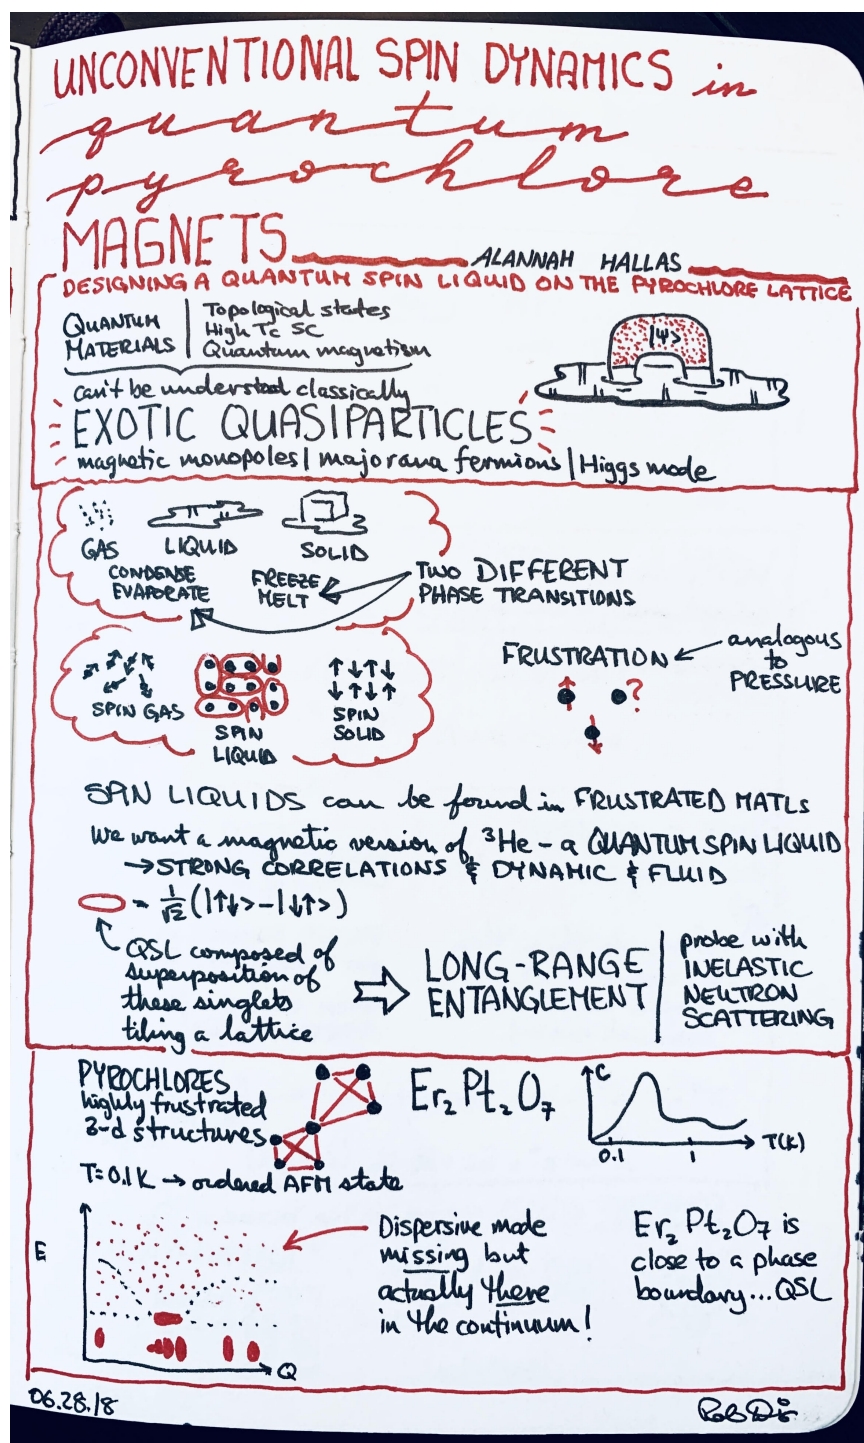 UNCONVENTIONAL SPIN DYNAMICS in
quantum
pyrochlore
MAGNETS
ALANNAH HALLAS
DESIGNING A QUANTUM SPIN LIQUID ON THE PYROCHLORE LATTICE
QUANTUM
MATERIALS
Topological states
High Tc SC
Quantum magnetism
can't be understood classically
|Ψ>
EXOTIC QUASIPARTICLES
magnetic monopoles | majorana fermions | Higgs mode
GAS
LIQUID
SOLID
CONDENSE
EVAPORATE
FREEZE
MELT
TWO DIFFERENT
PHASE TRANSITIONS
SPIN GAS
SPIN
LIQUID
↑↓↑↓
↓↑↓↑
SPIN
SOLID
FRUSTRATION ←
analogous
to
PRESSURE
?
SPIN LIQUIDS can be found in FRUSTRATED MATLS
We want a magnetic version of ³He - a QUANTUM SPIN LIQUID
→ STRONG CORRELATIONS & DYNAMIC & FLUID
= 1/√2 (|↑↓> - |↓↑>)
QSL composed of
superposition of
these singlets
tiling a lattice
⇒ LONG-RANGE
ENTANGLEMENT
probe with
INELASTIC
NEUTRON
SCATTERING
PYROCHLORES
highly frustrated
3-d structures
Er₂Pt₂O₇
C
0.1
1
T(K)
T=0.1K → ordered AFM state
E
Q
Dispersive mode
missing but
actually there
in the continuum!
Er₂Pt₂O₇ is
close to a phase
boundary... QSL
06.28.18